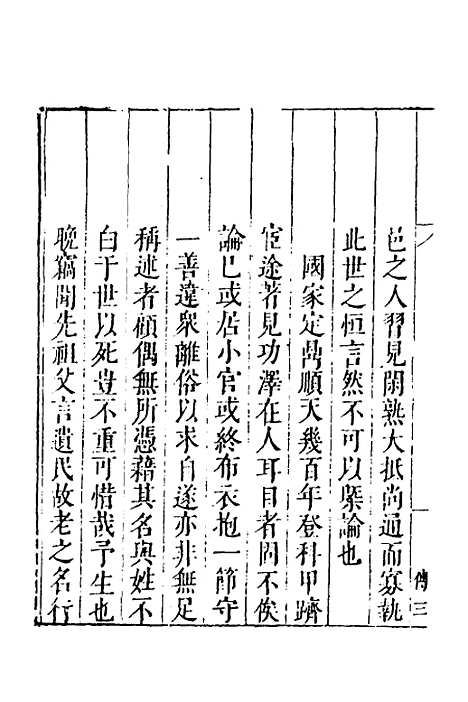 邑之人習見閑熟大抵尚通而寡執
此世之恒言然不可以槩論也
國家定鼎順天幾百年登科甲躋
宦途著見功澤在人耳目者固不俟
論已或居小官或終布衣抱一節守
一善違衆離俗以求自遂亦非無足
稱述者顧偶無所憑藉其名與姓不
白于世以死豈不重可惜哉予生也
晚竊聞先祖父言遺民故老之名行
傳三